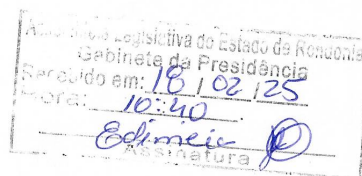 Legislativa do Estado de Rondônia
Gabinete da Presidência
Recebido em: 18 / 02 / 25
Hora: 10:40
Edimeir
Assinatura